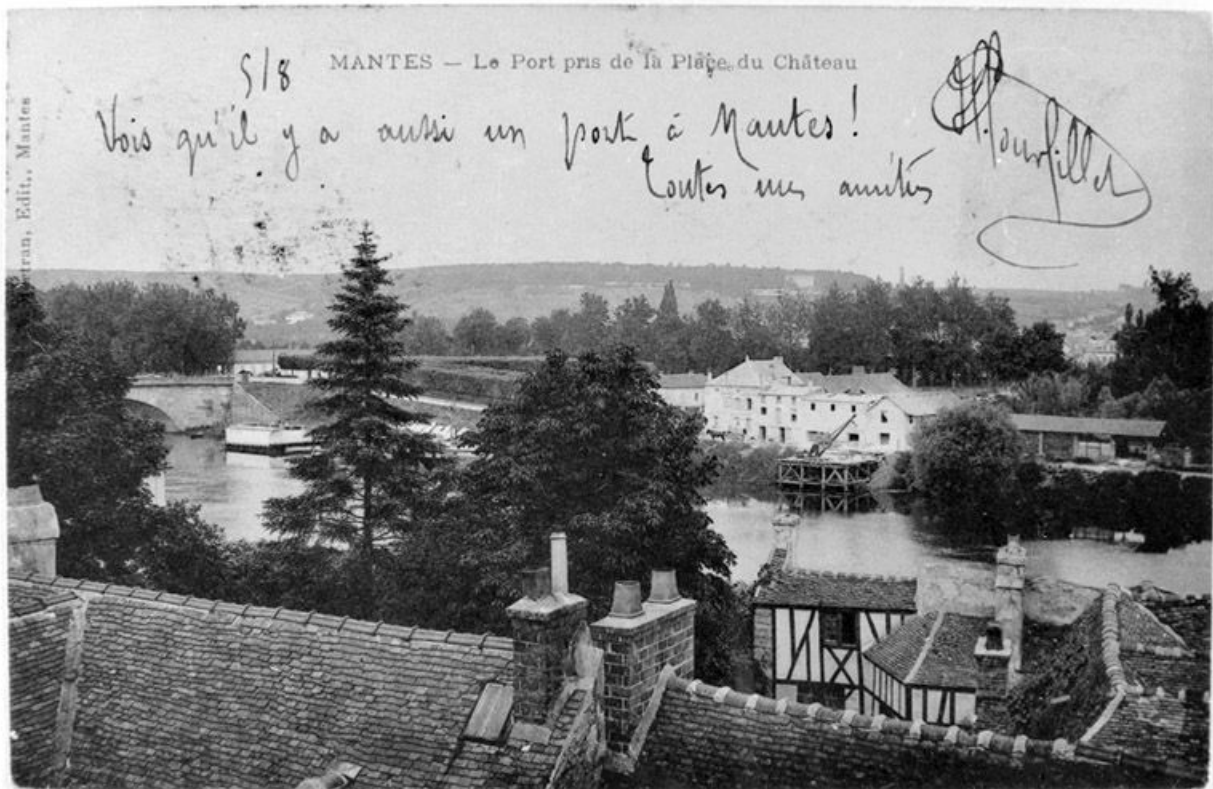 MANTES — Le Port pris de la Place du Château
5/8
Vois qu'il y a aussi un port à Mantes !
Toutes mes amitiés
etran, Edit., Mantes